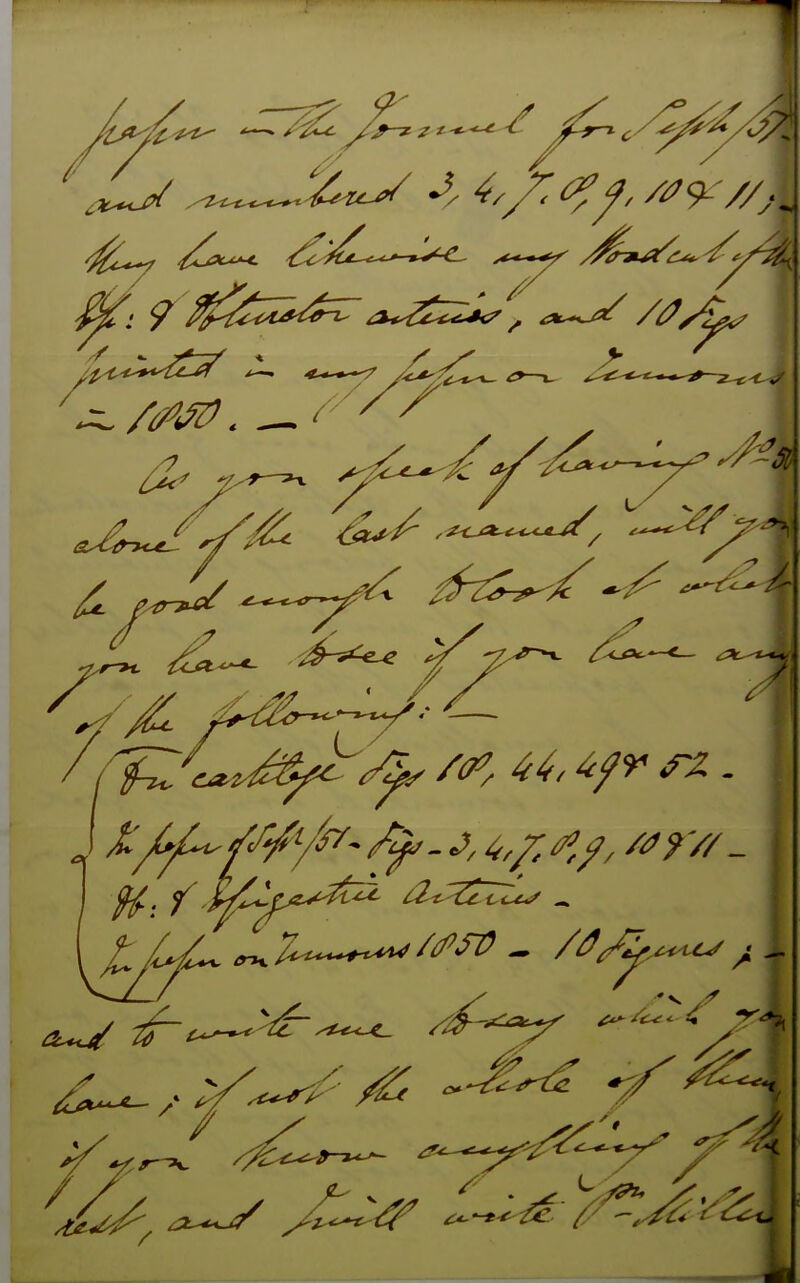 paper — The Journal for Sept/57.
and numbered 3, 4, 7, 8, 9, 10 & 11;
they have likewise my Woodcut of the
, and 10 Figs
printed in my paper on Tumours
in 1850. —
As you speak of having No. 50
alone of the last named, will you
be good enough to look at what
you have & see if you have any
of the following: —
On cartilage Figs 18, 44, 49 & 52 -
In paper Sept/57 - Figs - 3, 4, 7, 8, 9, 10 & 11 -
In paper on Tumours 1850 - 10 Figures; -
and to write me & say which you
have; if not the whole of them
if you know anything of the
rest, and I will write